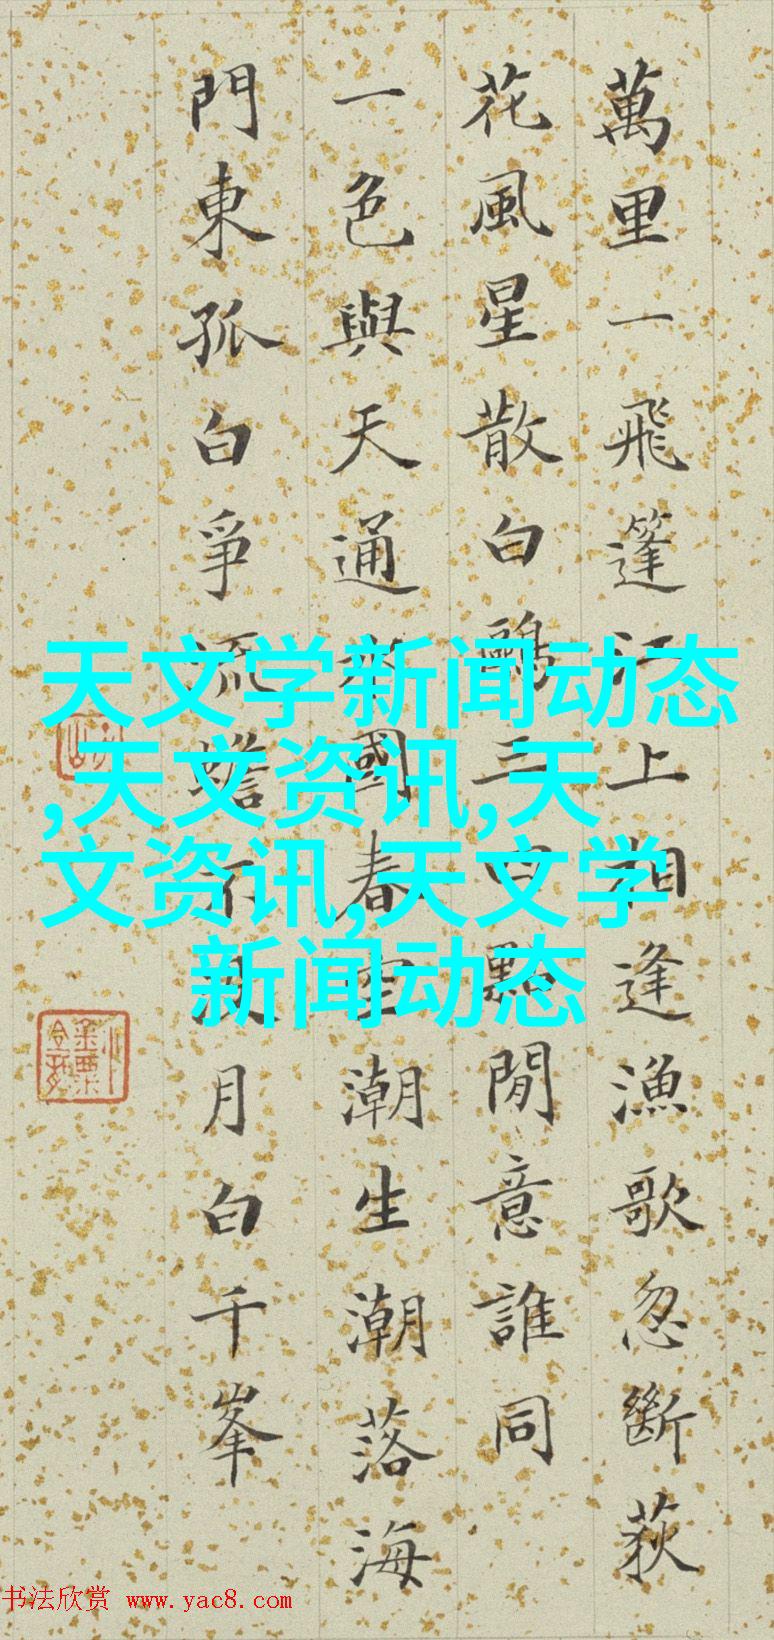 萬里一飛篷江上相逢漁歌忽斷荻
花風星散白鷗三點閒意誰同
一色與天通國春空潮生潮落海
門東孤白爭流蟾不月白千峯
天文学新闻动态
,天文资讯,天
文资讯,天文学
新闻动态
书法欣赏 www.yac8.com